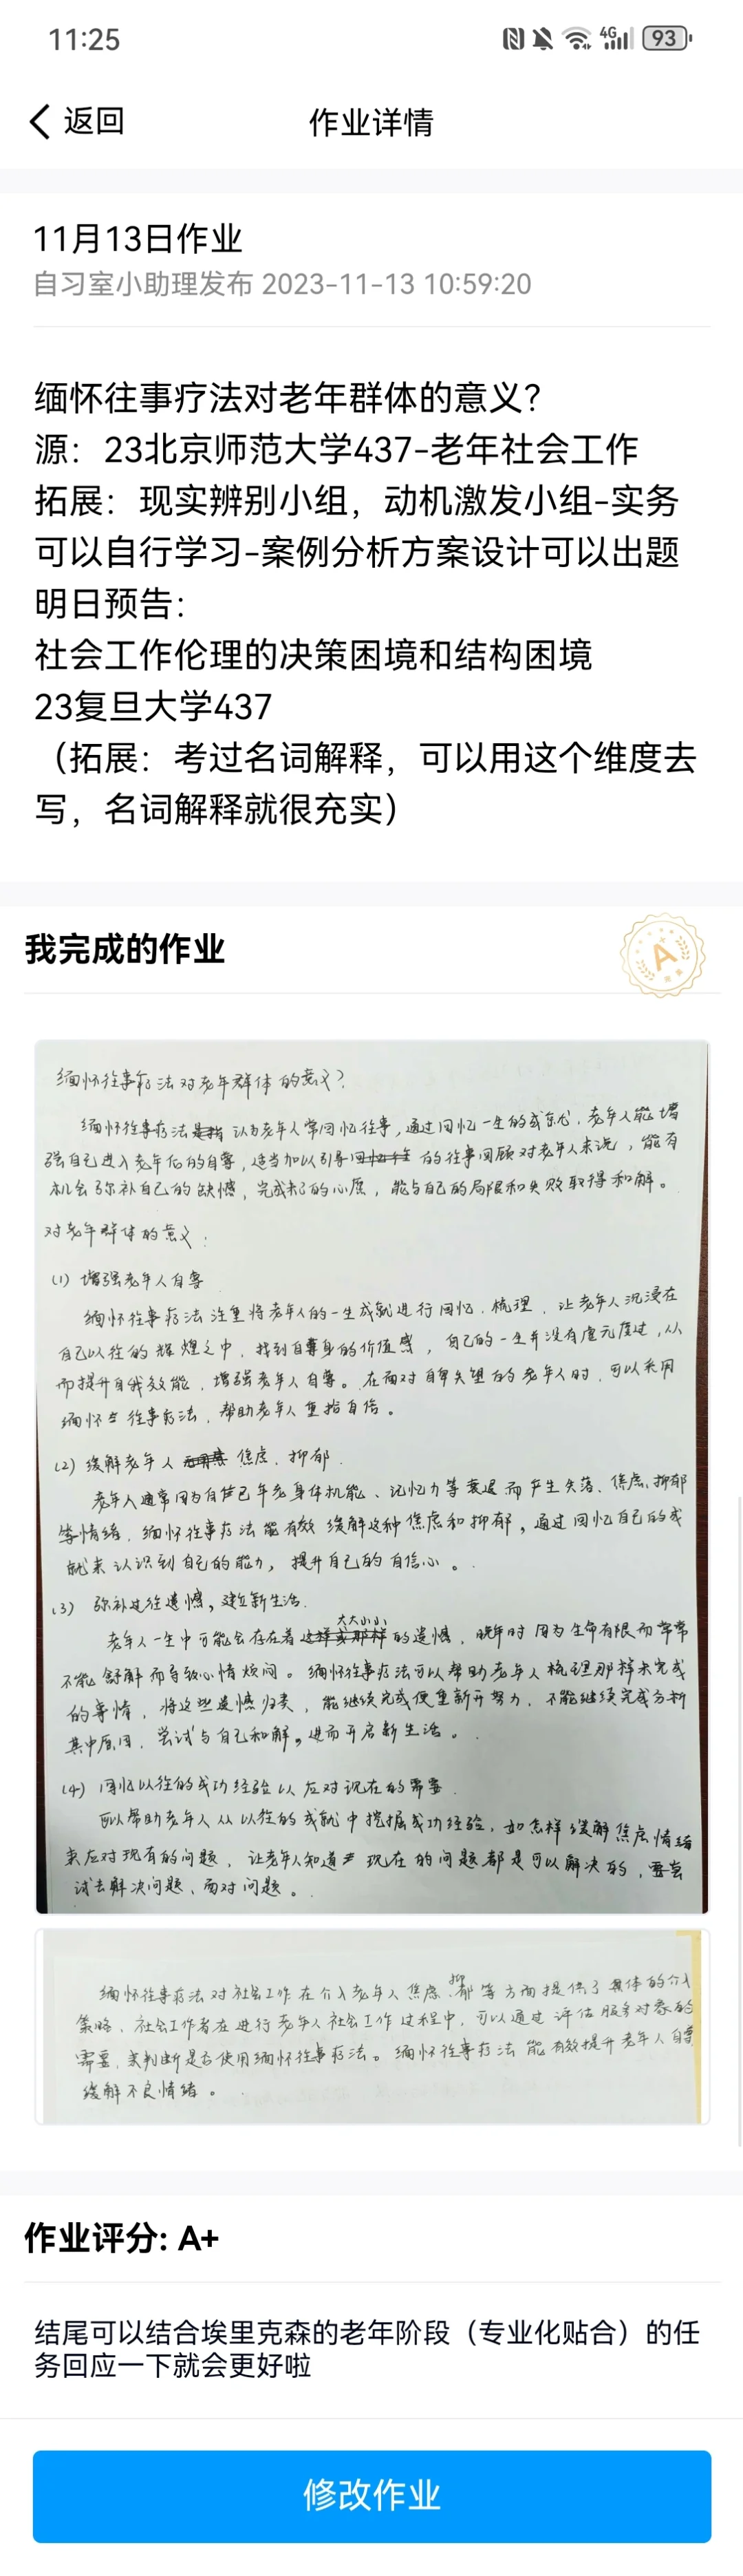 11:25
4G
93
返回
作业详情
11月13日作业
自习室小助理发布 2023-11-13 10:59:20
缅怀往事疗法对老年群体的意义？
源：23北京师范大学437-老年社会工作
拓展：现实辨别小组，动机激发小组-实务
可以自行学习-案例分析方案设计可以出题
明日预告：
社会工作伦理的决策困境和结构困境
23复旦大学437
（拓展：考过名词解释，可以用这个维度去
写，名词解释就很充实）
我完成的作业
A
缅怀往事疗法对老年群体的意义？
缅怀往事疗法认为老年人常回忆往事，通过回忆一生的成就，老年人能增
强自己进入老年后的自尊，适当加以引导的往事回顾对老年人来说，能有
机会弥补自己的缺憾，完成未了的心愿，能与自己的局限和失败取得和解。
对老年群体的意义：
(1) 增强老年人自尊
缅怀往事疗法注重将老年人的一生成就进行回忆、梳理，让老年人沉浸在
自己以往的辉煌之中，找到自身的价值感，自己的一生并没有虚无度过，从
而提升自我效能，增强老年人自尊。在面对自卑失望的老年人时，可以采用
缅怀往事疗法，帮助老年人重拾自信。
(2) 缓解老年人焦虑、抑郁.
老年人通常因为自信已年老身体机能、记忆力等衰退而产生失落、焦虑、抑郁
等情绪，缅怀往事疗法能有效缓解这种焦虑和抑郁，通过回忆自己的成
就来认识到自己的能力，提升自己的自信心。
(3) 弥补过往遗憾，建立新生活.
老年人一生中可能会存在着大大小小的遗憾，晚年时因为生命有限而常常
不能舒解而导致心情烦闷。缅怀往事疗法可以帮助老年人梳理那样未完成
的事情，将这些遗憾归类，能继续完成便重新开努力，不能继续完成分析
其中原因，尝试与自己和解，进而开启新生活。
(4) 回忆以往的成功经验以应对现在的需要.
可以帮助老年人从以往的成就中挖掘成功经验，如怎样缓解焦虑情绪
来应对现有的问题，让老年人知道现在的问题都是可以解决的，要尝
试去解决问题、面对问题。
缅怀往事疗法对社会工作在介入老年人焦虑、抑郁等方面提供了具体的介入
策略，社会工作者在进行老年人社会工作过程中，可以通过评估服务对象的
需要，来判断是否使用缅怀往事疗法。缅怀往事疗法能有效提升老年人自尊
缓解不良情绪。
作业评分: A+
结尾可以结合埃里克森的老年阶段（专业化贴合）的任
务回应一下就会更好啦
修改作业